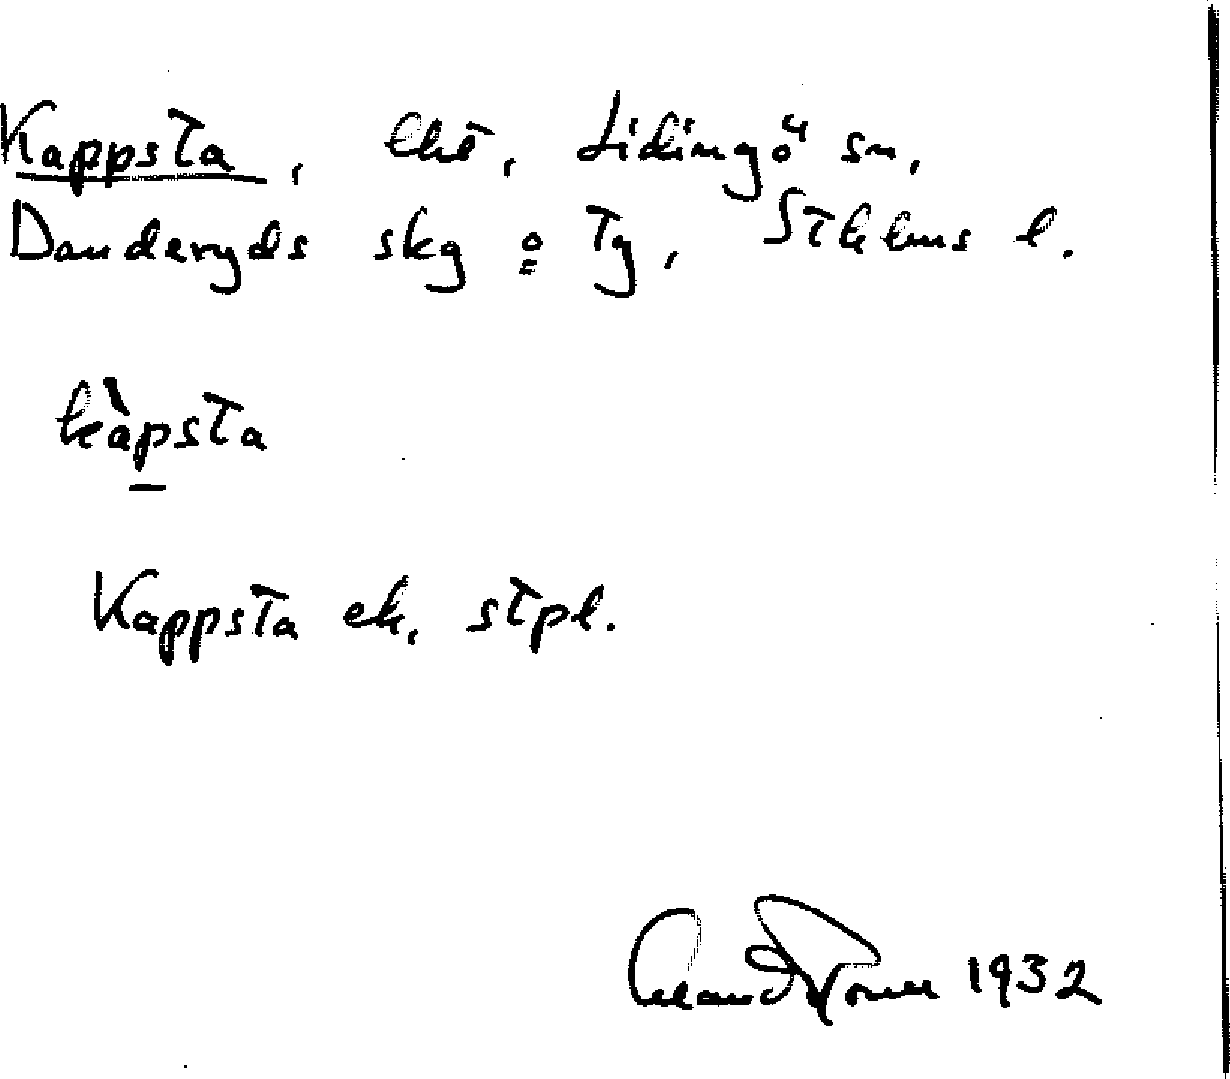 Kappsta, lht, Lidingö sn,
Danderyds skg o tg, Sthlms l.
kàpsta
Kappsta ek. stpl.
1932